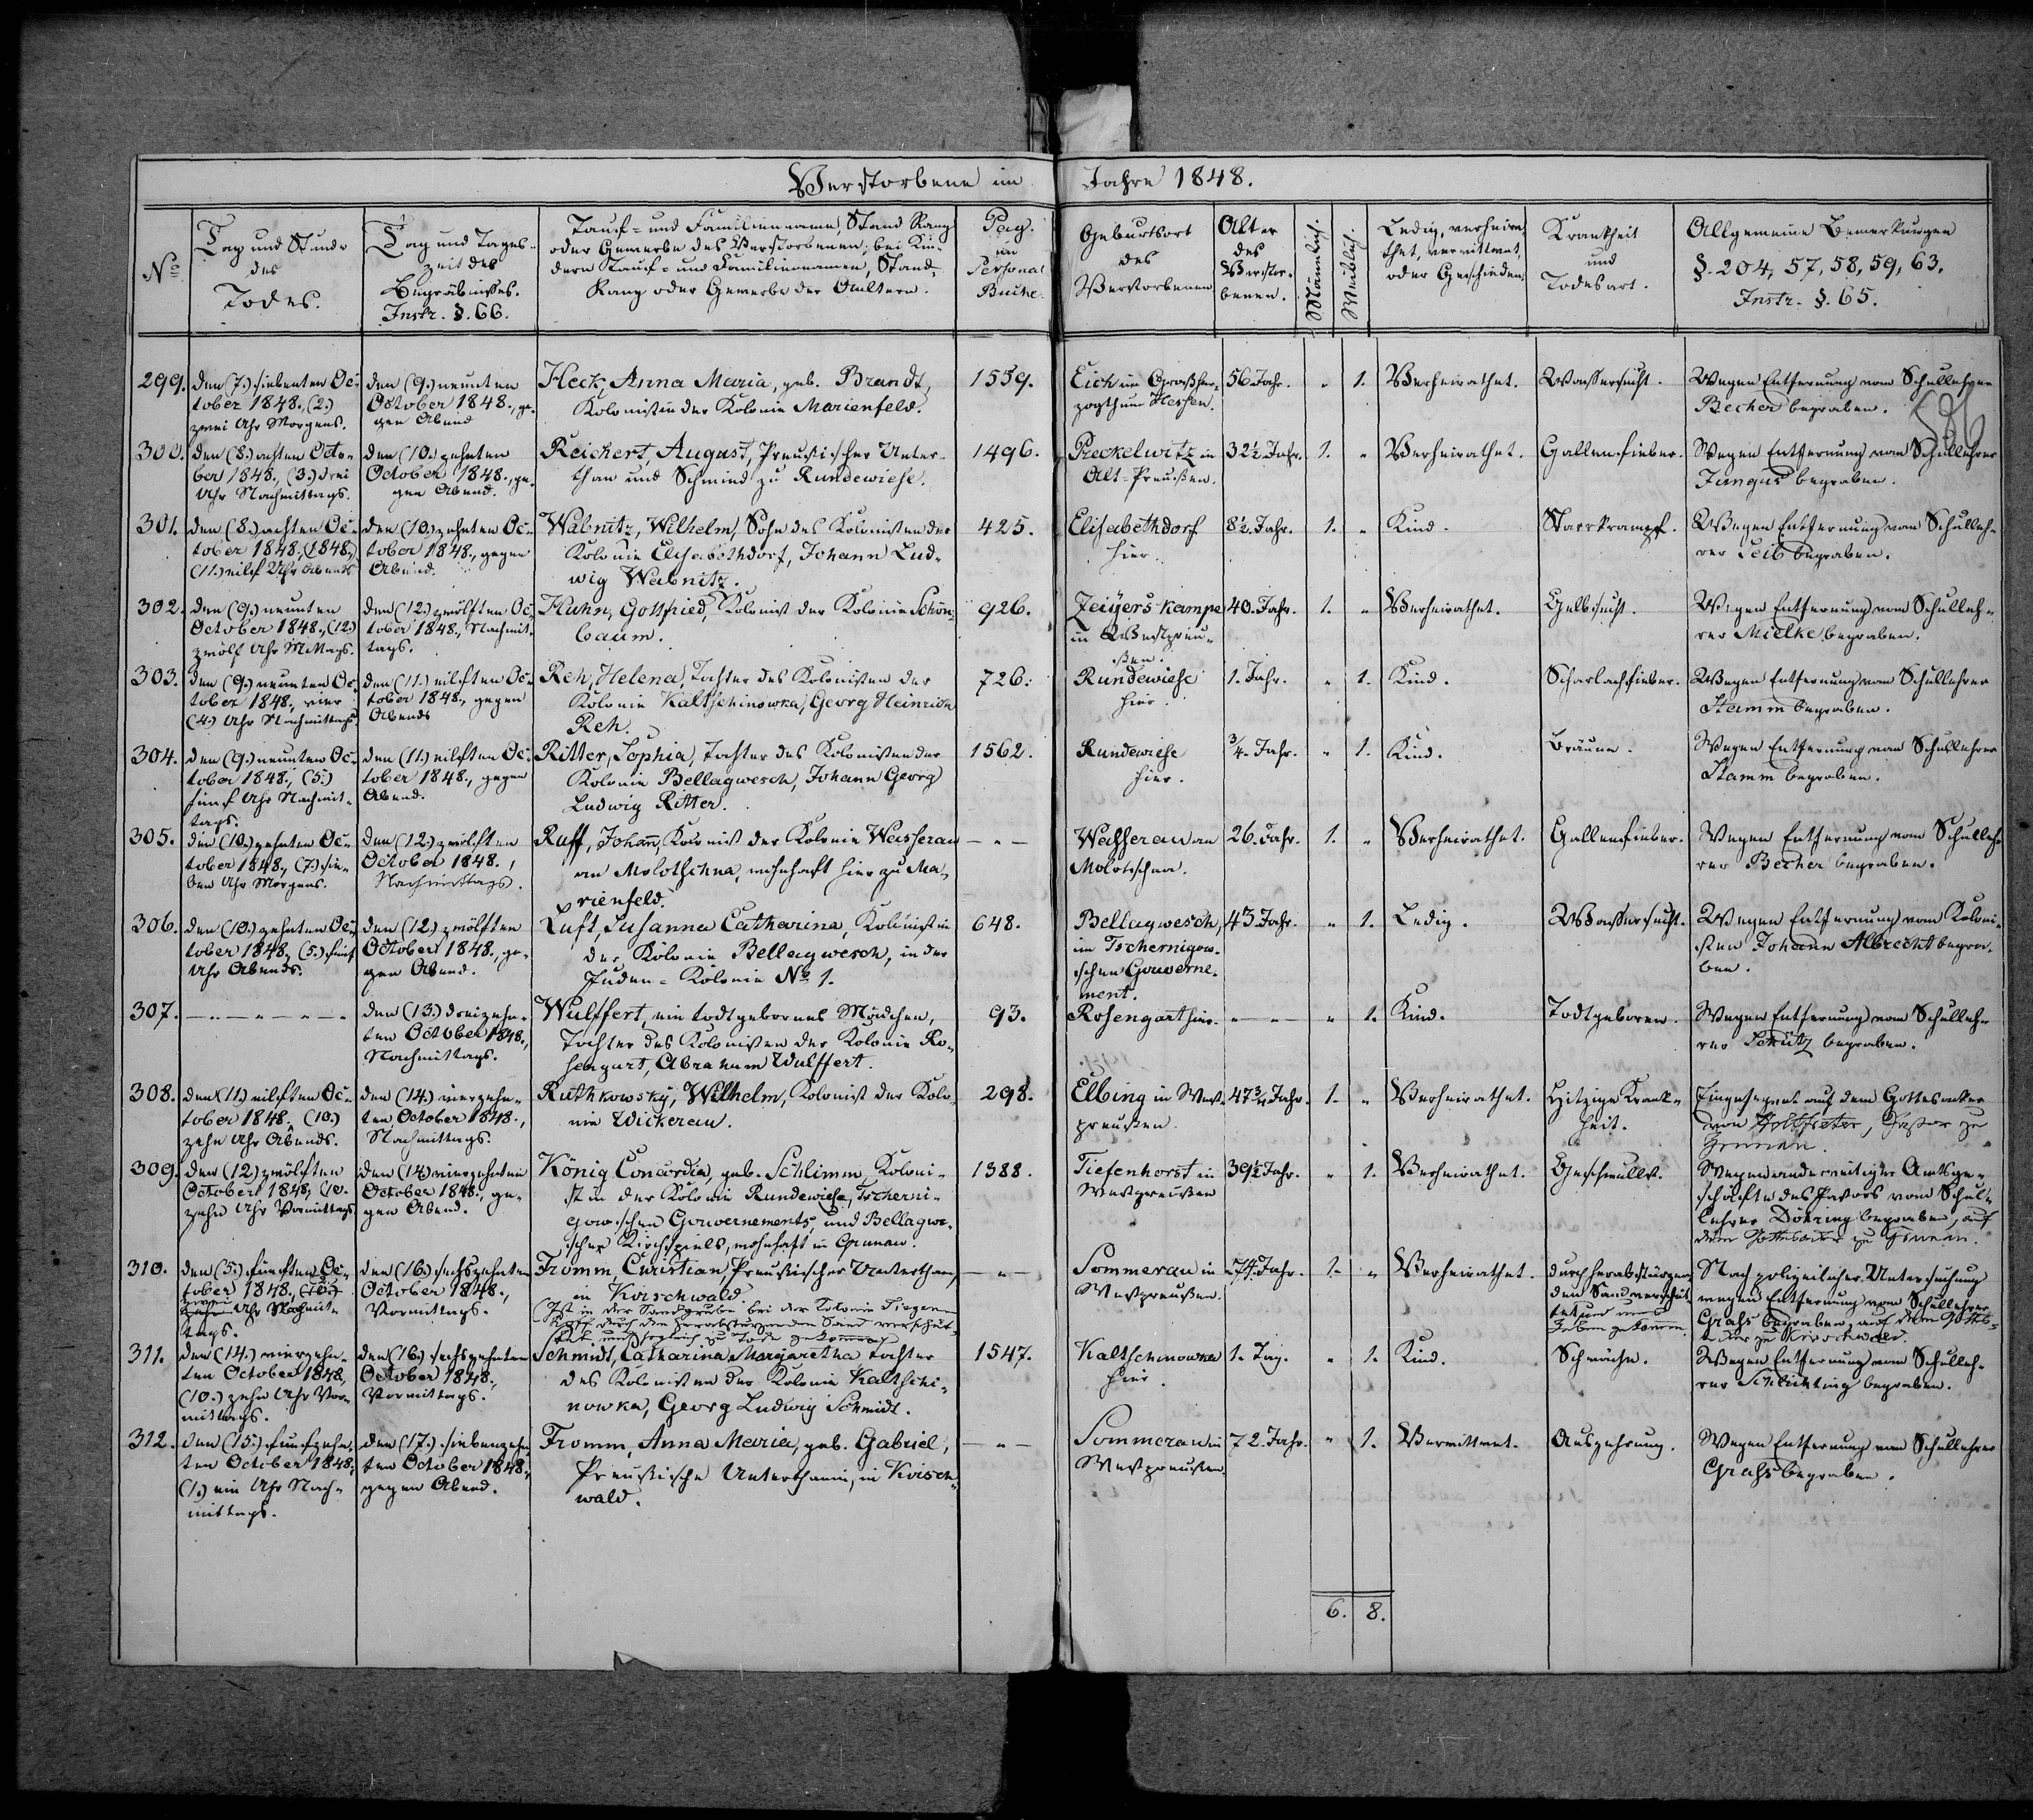 Verstorbene im Jahre 1848.
No
Tag und Stunde
des
Todes.
Tag und Tages-
zeit des
Begräbnisses.
Instr. §. 66.
Tauf- und Familienname, Stand Rang
oder Gewerbe des Verstorbenen; bei Kin-
dern Tauf- und Familiennamen, Stand,
Rang oder Gewerbe der Aeltern.
Pag.
im
Personal
Buche.
Geburtsort
des
Verstorbenen
Alter
des
Verstor-
benen.
Männlich.
Weiblich.
Ledig, verheira-
thet, verwittwet,
oder Geschieden.
Krankheit
und
Todesart.
Allgemeine Bemerkungen
§. 204, 57, 58, 59, 63.
Instr. §. 65.
586
299.
den (7.) siebenten Oc-
tober 1848., (2.)
zwei Uhr Morgens.
den (9.) neunten
October 1848., ge-
gen Abend
Heck, Anna Maria, geb. Brandt,
Kolonistin der Kolonie Marienfeld.
1559.
Eich im Großher-
zogthum Hessen.
56. Jahr.
" 1.
Verheirathet.
Wassersucht.
Wegen Entfernung vom Schullehrer
Becher begraben.
300.
den (8.) achten Octo-
ber 1848., (3.) drei
Uhr Nachmittags.
den (10.) zehnten
October 1848., ge-
gen Abend.
Reichert, August, Preußischer Unter-
than und Schmied zu Rundewiese.
1496.
Preckelwitz in
Alt-Preußen.
32½ Jahr.
1. "
Verheirathet.
Gallenfieber.
Wegen Entfernung vom Schullehrer
Jungus begraben.
301.
den (8.) achten Oc-
tober 1848., (1848.,)
(11.) eilf Uhr Abends
den (10.) zehnten Oc-
tober 1848., gegen
Abend.
Wabnitz, Wilhelm, Sohn des Kolonisten der
Kolonie Elisabethdorf, Johann Lud-
wig Wabnitz.
425.
Elisabethdorf
hier.
8½ Jahr.
1. "
Kind.
Starrkrampf.
Wegen Entfernung vom Schulleh-
rer Leib begraben.
302.
den (9.) neunten
October 1848., (12.)
zwölf Uhr Mittags.
den (12.) zwölften Oc-
tober 1848., Nachmit-
tags.
Huhn, Gottfried, Kolonist der Kolonie Schön-
baum.
926.
Zeijers kampe
in Westpreu-
ßen.
40. Jahr.
1. "
Verheirathet.
Gelbsucht.
Wegen Entfernung vom Schulleh-
rer Mielke begraben.
303.
den (9.) neunten Oc-
tober 1848., vier
(4.) Uhr Nachmittags
den (11.) eilften Oc-
tober 1848., gegen
Abends
Reh, Helena, Tochter des Kolonisten der
Kolonie Kaltschinowka, Georg Heinrich
Reh.
726.
Rundewiese
hier.
1. Jahr.
" 1.
Kind.
Scharlachfieber.
Wegen Entfernung vom Schullehrer
Stamm begraben.
304.
den (9.) neunten Oc-
tober 1848., (5.)
fünf Uhr Nachmit-
tags.
den (11.) eilften Oc-
tober 1848., gegen
Abend.
Ritter, Sophia, Tochter des Kolonisten der
Kolonie Bellagwesch, Johann Georg
Ludwig Ritter.
1562.
Rundewiese
hier.
¾. Jahr.
" 1.
Kind.
Bräune.
Wegen Entfernung vom Schullehrer
Stamm begraben.
305.
den (10.) zehnten Oc-
tober 1848., (7.) sie-
ben Uhr Morgens.
den (12.) zwölften
October 1848.,
Nachmittags.
Ruff, Johann, Kolonist der Kolonie Weisserau
an Molotschna, wohnhaft hier zu Ma-
rienfeld.
— " —
Weisserau an
Molotschna.
26. Jahr.
1. "
Verheirathet.
Gallenfieber.
Wegen Entfernung vom Schulleh-
rer Becher begraben.
306.
den (10.) zehnten Oc-
tober 1848., (5.) fünf
Uhr Abends.
den (12.) zwölften
October 1848., ge-
gen Abend.
Luft, Susanna Catharina, Kolonistin
der Kolonie Bellagwesch, in der
Juden-Kolonie No 1.
648.
Bellagwesch,
im Tschernigow-
schen Gouverne-
ment.
43. Jahr.
" 1.
Ledig.
Wassersucht.
Wegen Entfernung vom Koloni-
sten Johann Albrecht begra-
ben.
307.
— " — " — " —
den (13.) dreizehn-
ten October 1848.,
Nachmittags.
Wulffert, ein todtgebornes Mädchen,
Tochter des Kolonisten der Kolonie Ro-
sengart, Abraham Wulffert.
93.
Rosengart hier.
— " —
" 1.
Kind.
Todtgeboren.
Wegen Entfernung vom Schulleh-
rer Schütz begraben.
308.
den (11.) eilften Oc-
tober 1848., (10.)
zehn Uhr Abends.
den (14.) vierzehn-
ten October 1848.,
Nachmittags.
Ruthkowsky, Wilhelm, Kolonist der Kolo-
nie Wickerau.
298.
Elbing in West-
preußen.
47¾ Jahr.
1. "
Verheirathet.
Hitzige Krank-
heit.
Eingesegnet auf dem Gottesacker
von Holtfreter, Pastor zu
Grunau.
309.
den (12) zwölften
October 1848., (10.
zehn Uhr Vormittags
den (14) vierzehnten
October 1848., ge-
gen Abend.
König Concordia, geb. Schlimm, Koloni-
stin der Kolonie Rundewiese, Tscherni-
gowschen Gouvernements, und Bellagwe-
scher Kirchspiels, wohnhaft in Grunau.
1388.
Tiefenhorst in
Westpreußen
39½ Jahr.
" 1.
Verheirathet.
Geschwulst.
Wegen anderweitiger Amtsge-
schäfte des Pastors vom Schul-
lehrer Döhring begraben, auf
dem Gottesacker zu Grunau.
310.
den (5.) fünften Oc-
tober 1848., (10.)
zehn Uhr Nachmit-
tags.
den (16.) sechszehnten
October 1848.,
Vormittags.
Fromm, Christian, Preußischer Unterthan,
in Kirschwald
(Ist in der Sandgrube bei der Kolonie Tiegen-
hoff durch den herabstürzenden Sand verschüt-
tet und sogleich zu Tode gekommen)
— " —
Sommerau in
Westpreußen.
74. Jahr.
1. "
Verheirathet.
durch herabstürzen-
den Sand verschüt-
tet und ums
Leben gekommen.
Nach polizeilicher Untersuchung
wegen Entfernung vom Schullehrer
Grahs begraben, auf dem Gottes-
acker zu Kirschwald.
311.
den (14.) vierzehn-
ten October 1848,
(10.) zehn Uhr Vor-
mittags.
den (16.) sechszehnten
October 1848.,
Vormittags.
Schmidt, Catharina Margaretha Tochter
des Kolonisten der Kolonie Kaltschi-
nowka, Georg Ludwig Schmidt.
1547.
Kaltschinowka
hier.
1. Tag.
" 1.
Kind.
Schwäche.
Wegen Entfernung vom Schulleh-
rer Schlichting begraben.
312.
den (15.) funfzehn-
ten October 1848,
(1.) ein Uhr Nach-
mittags.
den (17.) siebenzehn-
ten October 1848.,
gegen Abend.
Fromm, Anna Maria, geb. Gabriel,
Preußische Unterthanin, in Kirsch-
wald.
— " —
Sommerau in
Westpreußen.
72. Jahr.
" 1.
Verwittwet.
Auszehrung.
Wegen Entfernung vom Schullehrer
Grahs begraben.
6. 8.